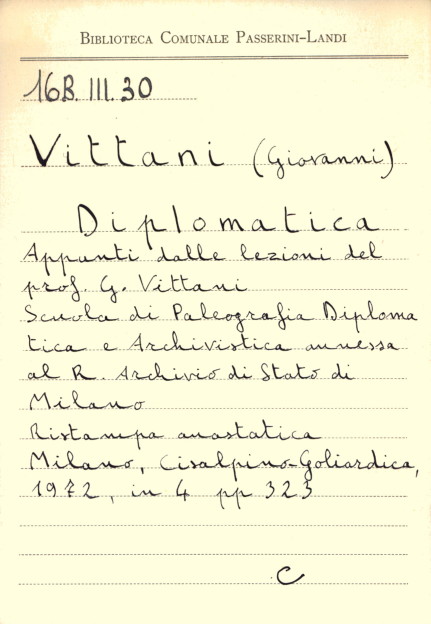 BIBLIOTECA COMUNALE PASSERINI-LANDI
16B. III. 30
Vittani (Giovanni)
Diplomatica
Appunti dalle lezioni del
prof. G. Vittani
Scuola di Paleografia Diploma
tica e Archivistica annessa
al R. Archivio di Stato di
Milano
Ristampa anastatica
Milano, Cisalpino-Goliardica,
1972, in 4 pp 323
C